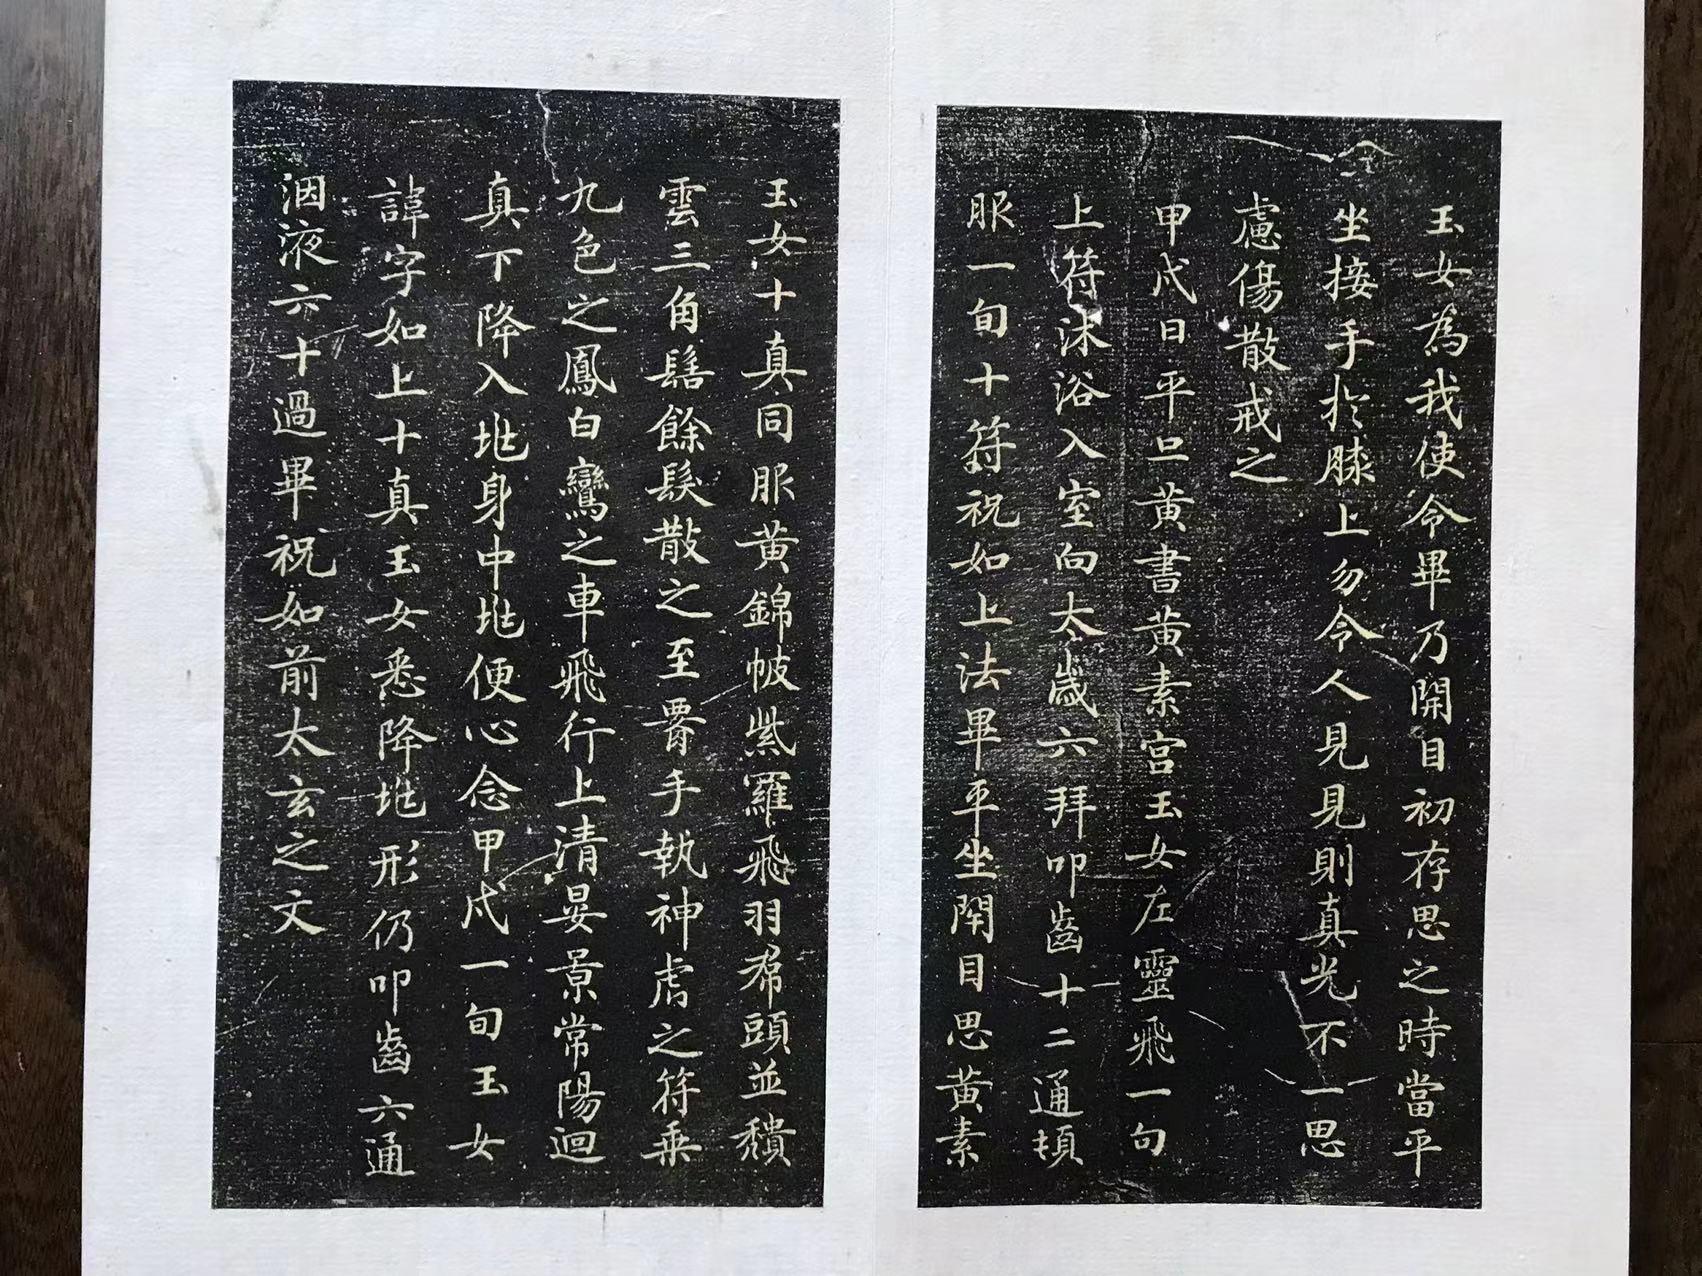 玉女為我使令畢乃開目初存思之時當平
坐接手於膝上勿令人見見則真光不一思
慮傷散戒之
甲戌日平旦黄書黄素宫玉女左靈飛一旬
上符沐浴入室向太歲六拜叩齒十二通頓
服一旬十符祝如上法畢平坐閇目思黄素
玉女十真同服黄錦帔紫羅飛羽帬頭並頽
雲三角髻餘髮散之至𦝫手執神虎之符乗
九色之鳳白鸞之車飛行上清晏景常陽迴
真下降入𡉄身中𡉄便心念甲戌一旬玉女
諱字如上十真玉女悉降𡉄形仍叩齒六通
洇液六十過畢祝如前太玄之文